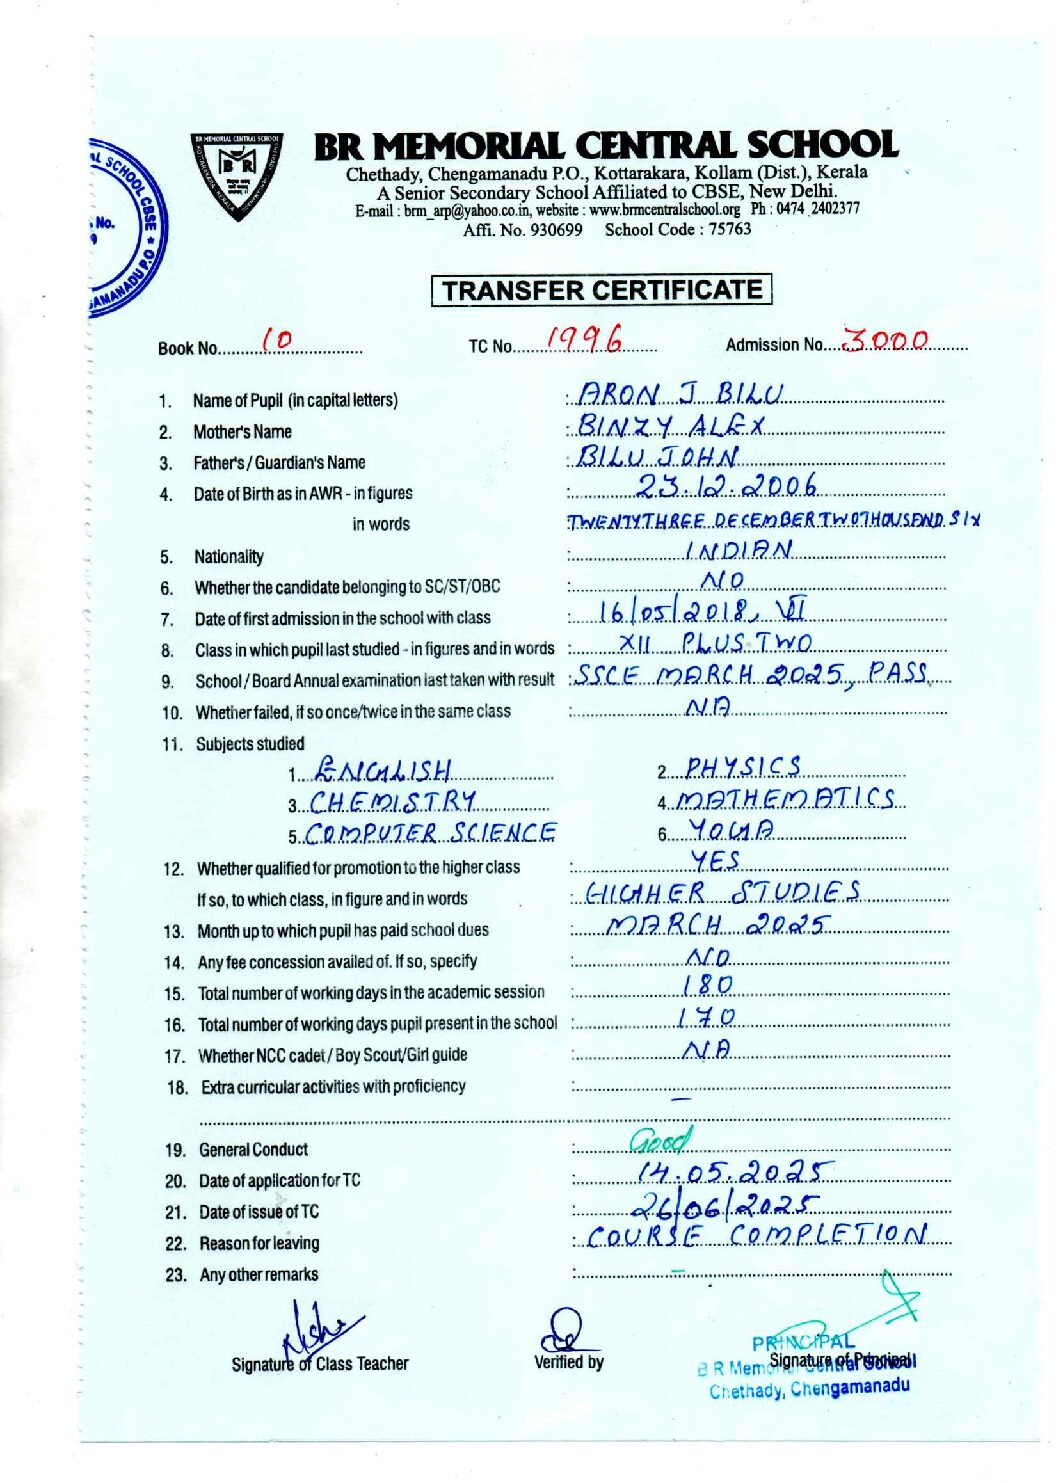 BR MEMORIAL CENTRAL SCHOOL
Chethady, Chengamanadu P.O., Kottarakara, Kollam (Dist.), Kerala
A Senior Secondary School Affiliated to CBSE, New Delhi.
E-mail : brm_arp@yahoo.co.in, website : www.brmcentralschool.org Ph : 0474 2402377
Affi. No. 930699 School Code : 75763
TRANSFER CERTIFICATE
Book No. 10 TC No. 1996 Admission No. 3000
1. Name of Pupil (in capital letters) : ARON J BILU
2. Mother's Name : BINZY ALEX
3. Father's / Guardian's Name : BILU JOHN
4. Date of Birth as in AWR - in figures : 23.12.2006
in words : TWENTYTHREE DECEMBER TWOTHOUSEND SIX
5. Nationality : INDIAN
6. Whether the candidate belonging to SC/ST/OBC : NO
7. Date of first admission in the school with class : 16/05/2018, VI
8. Class in which pupil last studied - in figures and in words : XII PLUS TWO
9. School / Board Annual examination last taken with result : SSCE MARCH 2025, PASS
10. Whether failed, if so once/twice in the same class : NA
11. Subjects studied
1. ENGLISH 2. PHYSICS
3. CHEMISTRY 4. MATHEMATICS
5. COMPUTER SCIENCE 6. YOGA
12. Whether qualified for promotion to the higher class : YES
If so, to which class, in figure and in words : HIGHER STUDIES
13. Month up to which pupil has paid school dues : MARCH 2025
14. Any fee concession availed of. If so, specify : NO
15. Total number of working days in the academic session : 180
16. Total number of working days pupil present in the school : 170
17. Whether NCC cadet / Boy Scout/Girl guide : NA
18. Extra curricular activities with proficiency : —
19. General Conduct : Good
20. Date of application for TC : 14.05.2025
21. Date of issue of TC : 26/06/2025
22. Reason for leaving : COURSE COMPLETION
23. Any other remarks : —
Signature of Class Teacher Verified by Signature of Principal
PRINCIPAL
B R Memorial Central School
Chethady, Chengamanadu